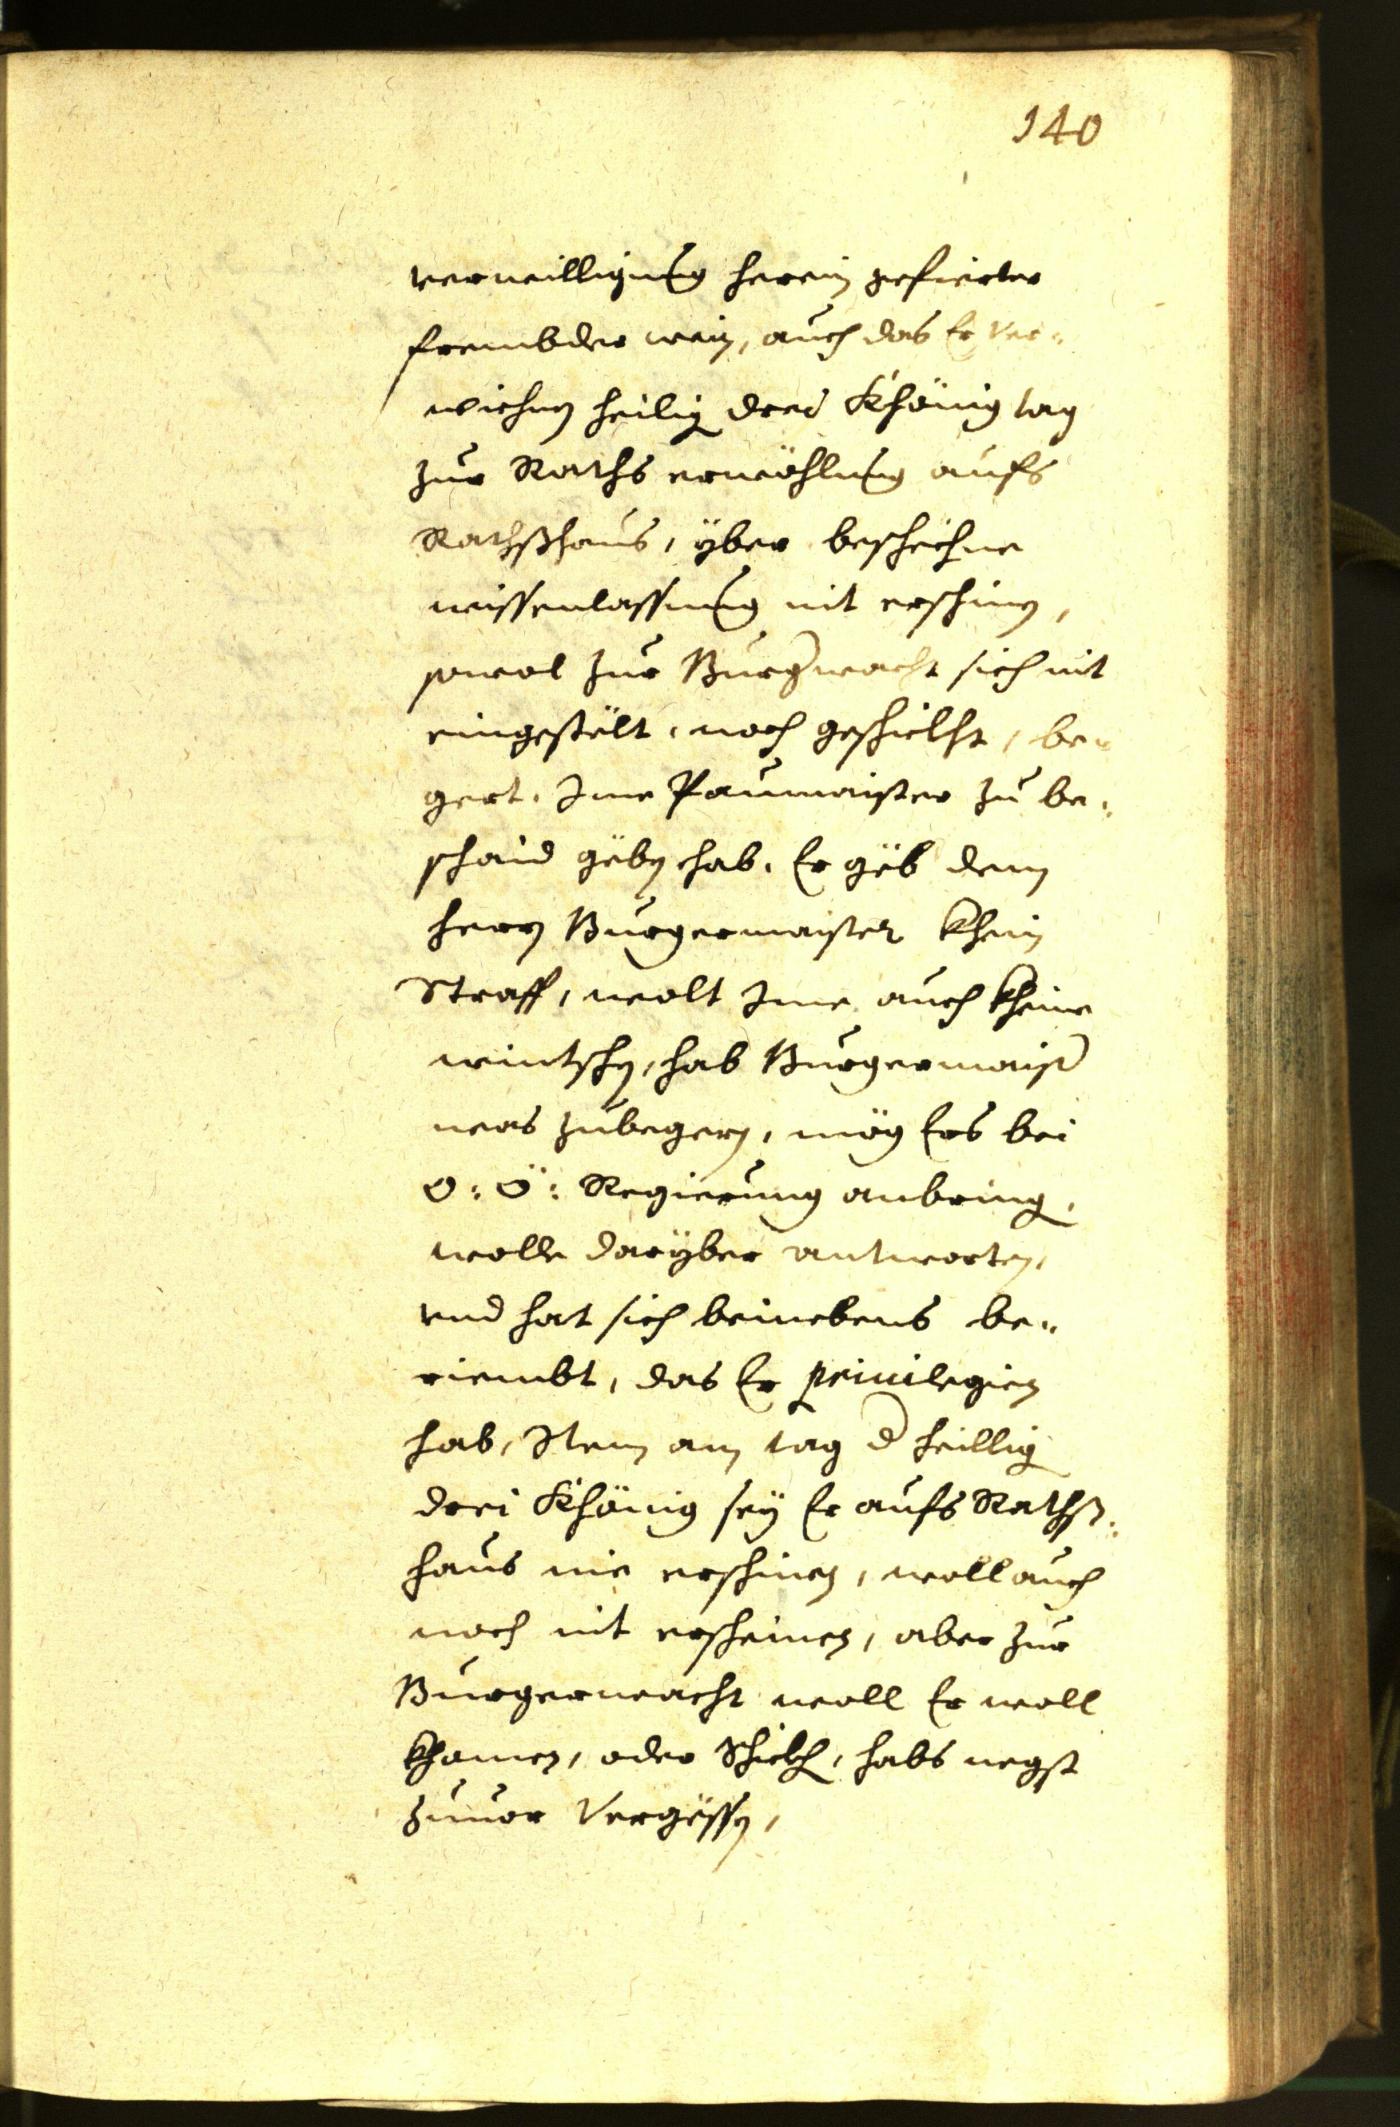 140
verwilligung herein gefierter
frembder wein, auch das Er ver„
wichnen heilig drei Khönig tag
zur Raths erwöhlung aufs
Rathßhaus, yber beschechne
wissenlassung nit erschinen,
sowol zur Burgerwacht sich nit
eingestölt, noch geschickht, be„
gert. Ime Paumaister zu be„
schaid göben hab. Er göb dem
hern Burgermaister khein
Straff, wolt Ime auch kheine
wintschen, hab Burgermaister
was zubegern, mög Ers bei
O: Ö: Regierung anbringen,
wolle daryber antworten,
vnd hat sich beinebens be„
riembt, das Er priuilegien
hab, Item am tag der heillig
drei Khönig sey Er aufs Rathß„
haus nie erschinen, woll auch
noch nit erscheinen, aber zur
Burgerwacht woll Er woll
khomen, oder Schickhen, habs negst
zuuor Vergössen,